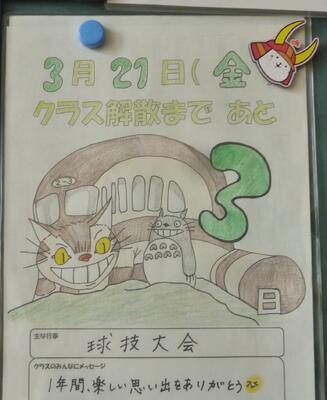 3月21日(金
クラス解散まで あと
3
日
主な行事
球技大会
クラスのみんなにメッセージ
1年間、楽しい思い出をありがとう